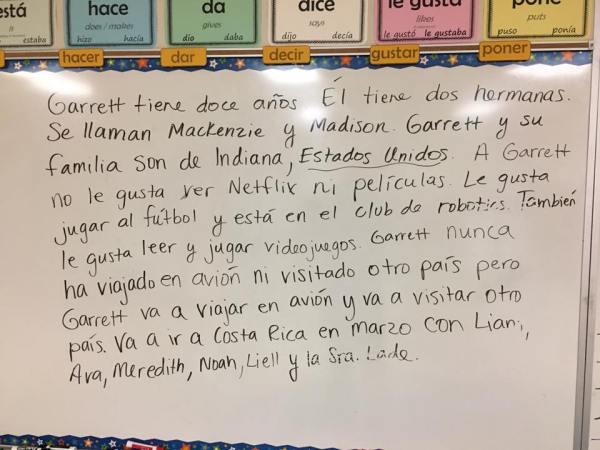 está hace da dice le gusta pone
is does / makes gives says likes puts
estaba hizo hacía dio daba dijo decía le gustó le gustaba puso ponía
hacer dar decir gustar poner
Garrett tiene doce años Él tiene dos hermanas.
Se llaman Mackenzie y Madison. Garrett y su
familia son de Indiana, Estados Unidos. A Garrett
no le gusta ver Netflix ni películas. Le gusta
jugar al fútbol y está en el club de robotics. También
le gusta leer y jugar videojuegos. Garrett nunca
ha viajado en avión ni visitado otro país pero
Garrett va a viajar en avión y va a visitar otro
país. Va a ir a Costa Rica en marzo con Liani,
Ava, Meredith, Noah, Liell y la Sra.